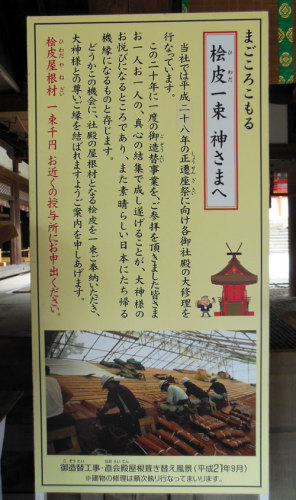 まごころこもる
檜皮一束 神さまへ
ひわだ
当社では平成二十八年の正遷座祭に向け各御社殿の大修理を
行なっています。
この二十年に一度の御造替事業をご参拝を頂きました皆さま
お一人お一人の真心の結集で成し遂げることが、大神様の
お悦びになるところであり、また素晴らしい日本にたち帰る
機縁になるものと存じます。
どうかこの機会に、社殿の屋根材となる桧皮を一束ご奉納いただき、
大神様との尊いご縁を結ばれますようご案内を申しあげます。
ひわだやねざい
桧皮屋根材 一束千円 お近くの授与所にお申出ください。
ごぞうたい なおらいでん
御造替工事・直会殿屋根葺き替え風景(平成21年9月)
※建物の修理は順次執り行なってまいります。